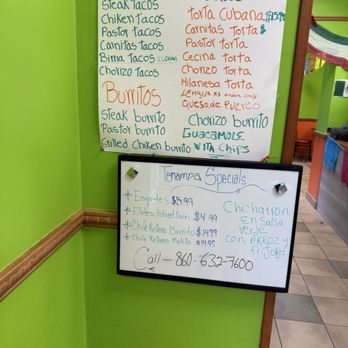 Steak Tacos
Chiken Tacos
Pastor tacos
Carnitas Tacos
Birria Tacos
Chorizo Tacos
Torta Cubana $15.99
Carnitas Torta $
Pastor torta
Cecina torta
Chorizo torta
Milanesa torta
Lengua
Queso de Puerco
Burritos
Steak burrito
Pastor burrito
Grilled Chicken burrito
Chorizo burrito
Guacamole
Chips
Tenampa Specials
Esquites $5.99
Elotes Street Corn $4.99
Chile Relleno Burrito $14.99
Chile Relleno Platillo $14.99
Chicharron
en Salsa
Verde
con Arroz y
frijoles
Call - 860-632-7600